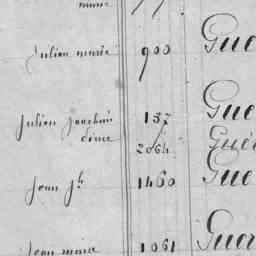 mme 77
Julien marie 900 Gue
Julien Joachim 157 Gue
dime 2064 Gué
Jean Jh 1460 Gue
Jean marie 1061 Guer